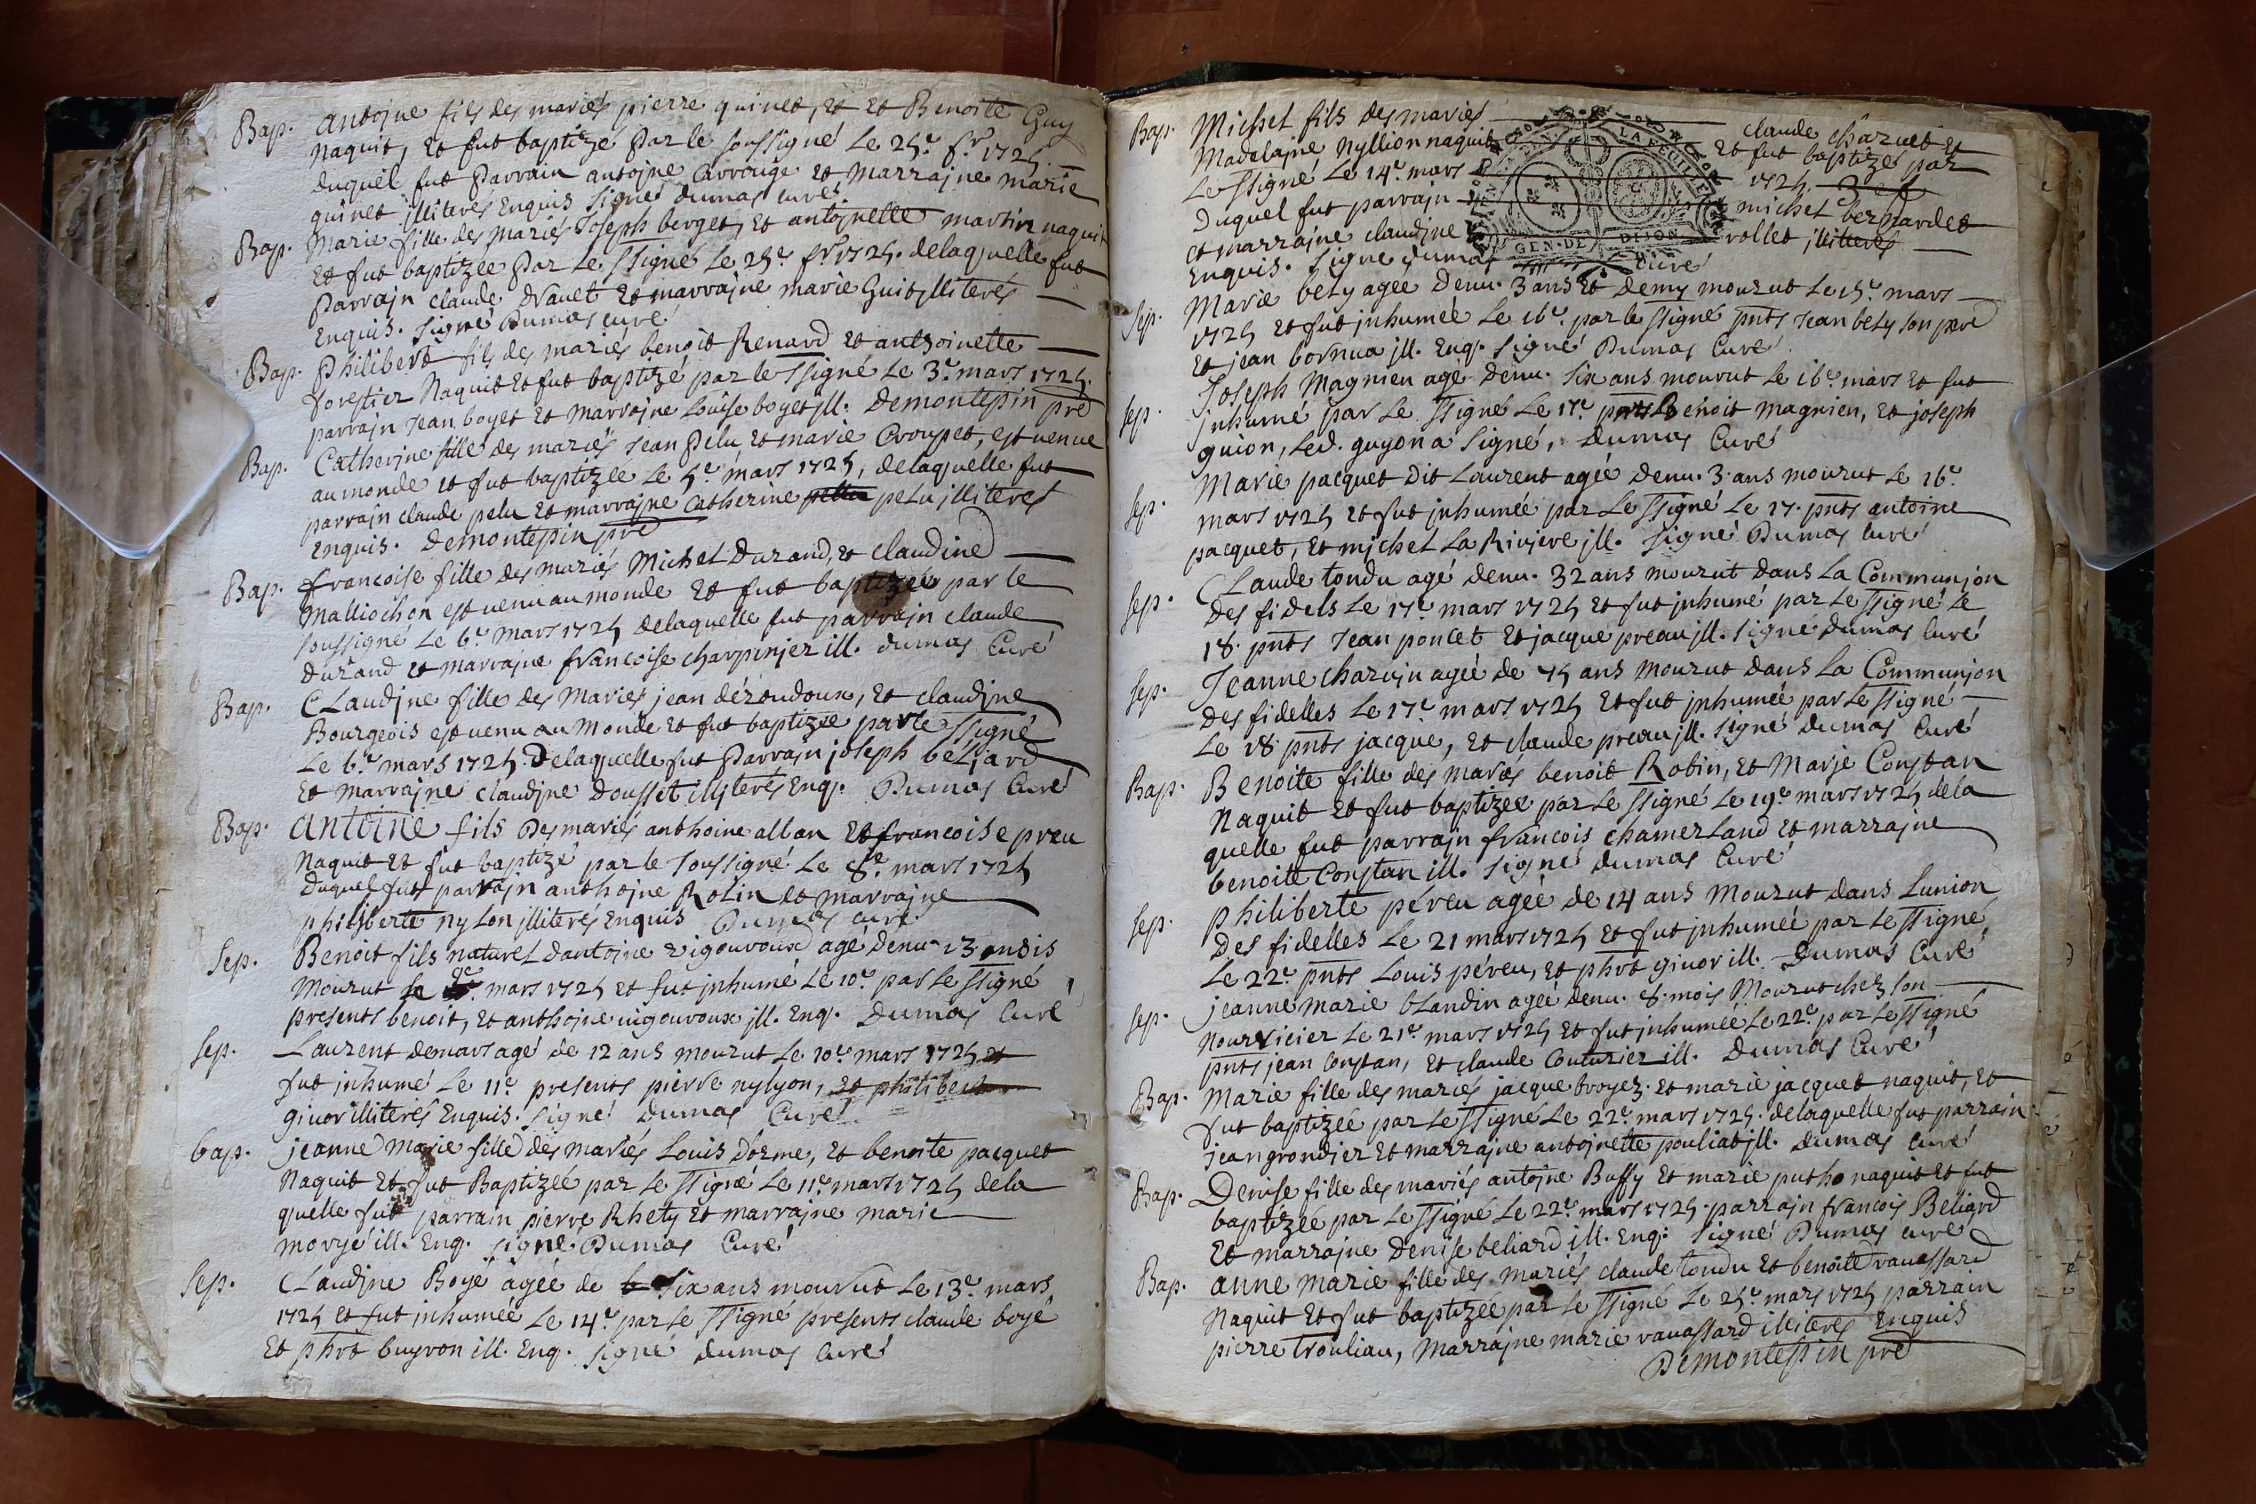 Bap. antoine fils des mariés pierre quinet, et et Benoite Guy
Naquit, et fut baptizé par le soussigné Le 25e fr 1725.
duquel fut parrain antojne Carrouge et Marrajne marie
quinet jlliterés Enquis signé dumas curé
Bap. Marie fille des mariés Joseph berget, et antojnette martin naquit
et fut baptizée par Le ssigné Le 25e fr 1725. delaquelle fut
parrajn claude et marrajne marie Guit jlliterés
Enquis. signé Dumas curé
Bap. Philibert fils des mariés benoit Renard et antoinette
forestier Naquit et fut baptizé par le ssigné Le 3e mars 1725.
parrajn Jean boyet et Marrajne Louise boyet jll. Demontessin pre
Bap. Catherjne fille des mariés Jean pelu et marie Crouzet, est venue
au monde et fut baptizée Le 5e mars 1725, delaquelle fut
parrajn claude pelu et marrajne Catherine pelu jlliterés
Enquis. Demontessin pre
Bap. francoise fille des mariés Michel Durand, et claudine
Malliochon est venu au monde et fut baptizée par le
soussigné Le 6e mars 1725 delaquelle fut parrajn claude
durand et marrajne francoise charpinjer ill. dumas Curé
Bap. CLaudjne fille des Mariés jean dézoudoux, et claudjne
Bourgeois est venu au Monde et fut baptizée par le ssigné
Le 6e mars 1725. Delaquelle fut parrajn joseph béljard
et Marrajne claudjne Dousset illiterés Enq. Dumas Curé
Bap. antoine fils Des mariés anthoine alban et francoise preu
Naquit et fut baptizé par le soussigné Le 8e mars 1725
duquel fut parrajn anthojne Robin et marrajne
philjberte nylon jlliterés Enquis Dumas curé
Sep. Benoit fils naturel dantojne vigouroux agé denv. 13
Mourut le 9e mars 1725 et fut jnhumé Le 10e par le ssigné
presents benoit, et anthojne vigouroux jll. Enq. Dumas Curé
sep. Laurent demars agé de 12 ans mourut Le 10e mars 1725 et
fut jnhumé Le 11e presents pierre nylyon, et philibert
givor illiterés Enquis. signé Dumas Curé
bap. jeanne Marie fille des mariés Louis dorme, et benoite pacquet
Naquit et fut Baptizée par Le ssigné Le 11e mars 1725 dela
quelle fut parrain pierre Rhety et marrajne marie
moryé ill. Enq. signé Dumas Curé
Sep. CLaudjne Boyé agée de six ans mourut Le 13e mars
1725 et fut jnhumée Le 14e par le ssigné presents claude boyé
et phbt buyron ill. Enq. signé dumas Curé
Bap. Michel fils des mariés claude charuet et
Madelajne Nyllion naquit et fut baptizé par
Le ssigné Le 14e mars 1725.
Duquel fut parrajn michel bernardet
et marrajne claudjne rollet jlliterés
Enquis. signé dumas Curé
GEN. DE DIJON
Sep. Marie bety agee Denv. 3 ans et Demy mourut Le 15e mars
1725 et fut jnhumée Le 16e par le ssigné pnts Jean bety son pere
et jean bornua jll. Enq. signé Dumas Curé
sep. Joseph Magnien agé denv. six ans mourut Le 16e mars et fut
jnhumé par Le ssigné Le 17e pnts Benoit magnien, et joseph
guion, Led. guyon a signé, Dumas Curé
sep. Marie pacquet Dit Laurent agée denv. 3 ans mourut Le 16e
mars 1725 et fut jnhumée par Le ssigné Le 17. pnts antoine
pacquet, et michel La Riviere jll. signé Dumas Curé
sep. CLaude tondu agé denv. 32 ans mourut Dans La Communjon
Des fidels Le 17e mars 1725 et fut jnhumé par Le ssigné Le
18. pnts Jean poncet et jacque preau jll. signé dumas Curé
sep. Jeanne charvjn agée de 75 ans mourut Dans La Communjon
Des fidelles Le 17e mars 1725 et fut jnhumée par Le ssigné
Le 18 pnts jacque, et claude preau jll. signé dumas Curé
Bap. Benoite fille des mariés benoit Robin, et Marje Constan
Naquit et fut baptizée par Le ssigné Le 19e mars 1725 dela
quelle fut parrajn francois chamerLand et marrajne
benoite Constan ill. signé dumas Curé
sep. philiberte péreu agée de 14 ans Mourut dans Lunion
Des fidelles Le 21 mars 1725 et fut jnhumée par Le ssigné
Le 22e pnts Louis péreu, et phbt givor ill. Dumas Curé
sep. jeanne marie bLandin agée denv. 8 mois Mourut chez son
Nourricier Le 21e mars 1725 et fut jnhumée Le 22e par Le ssigné
pnts jean Constan, et claude Couturier ill. Dumas Curé
Bap. Marie fille des mariés jacque broyez et marie jacquet naquit, et
fut baptizée par Le ssigné Le 22e mars 1725. delaquelle fut parrain
jean grondjer et marrajne antojnette pouliat jll. Dumas Curé
Bap. Denise fille des mariés antojne Buffy et marie putho naquit et fut
baptizée par Le ssigné Le 22e mars 1725. parrajn francois Beliard
et marrajne Denise beliard ill. Enq. signé Dumas Curé
Bap. anne marie fille des mariés claude tondu et benoite vauassard
Naquit et fut baptizée par Le ssigné Le 25e mars 1725 parrain
pierre trouliau, Marrajne marie vauassard illiterés Enquis
Demontessin pre